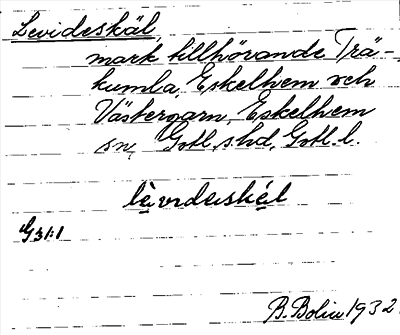 Levideskäl,
mark tillhörande Trä-
kumla, Eskelhem och
Västergarn, Eskelhem
sn, Gotl. s. hd, Gotl. l.
lèvidaskél
G31:1
B. Bolin 1932.